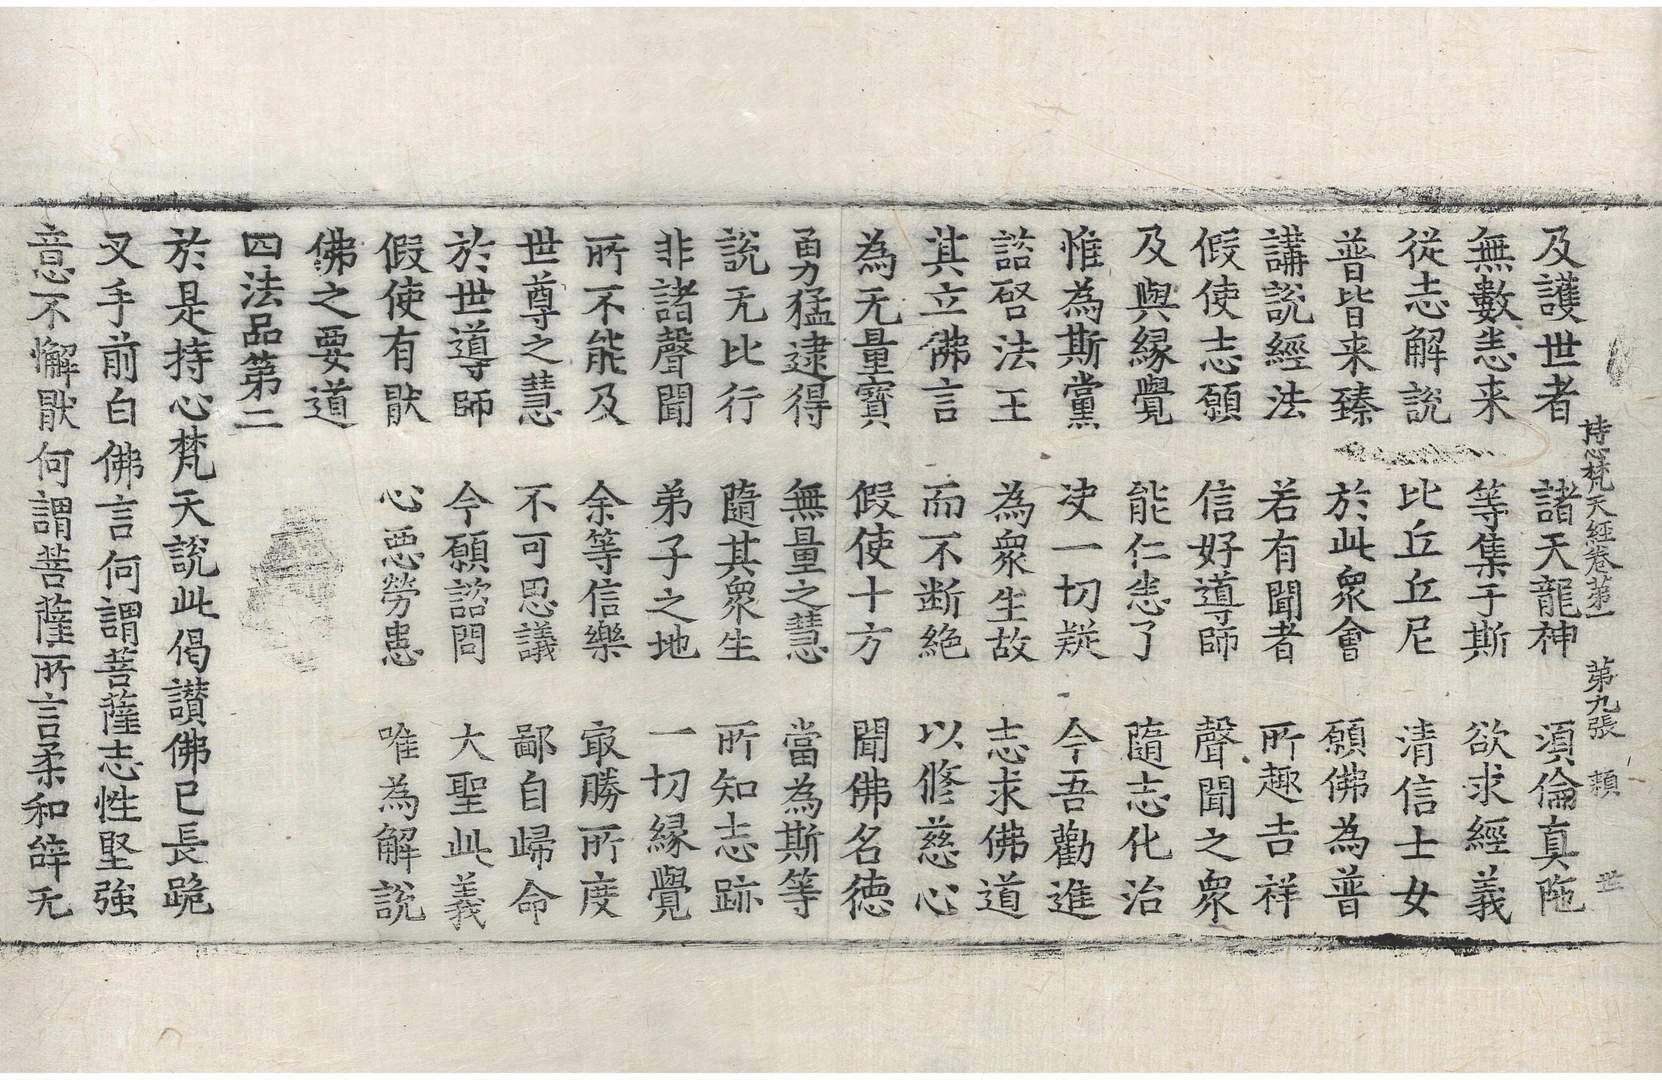 持心梵天經卷第一 第九張 頼 世
及護世者 諸天龍神 須倫真陁
無數恙来 等集于斯 欲求經義
從志解説 比丘丘尼 清信士女
普皆来臻 於此衆會 願佛為普
講説經法 若有聞者 所趣吉祥
假使志願 信好導師 聲聞之衆
及與縁覺 能仁恙了 隨志化治
惟為斯黨 决一切疑 今吾勸進
諮啓法王 為衆生故 志求佛道
其立佛言 而不断絶 以修慈心
為无量寶 假使十方 聞佛名德
勇猛逮得 無量之慧 當為斯等
説无比行 隨其衆生 所知志跡
非諸聲聞 弟子之地 一切縁覺
所不能及 余等信樂 㝡勝所度
世尊之慧 不可思議 鄙自歸命
於世導師 今願諮問 大聖此義
假使有猒 心惡勞患 唯為解説
佛之要道
四法品第二
於是持心梵天説此偈讃佛已長跪
叉手前白佛言何謂菩薩志性堅強
意不懈猒何謂菩薩所言柔和辝无